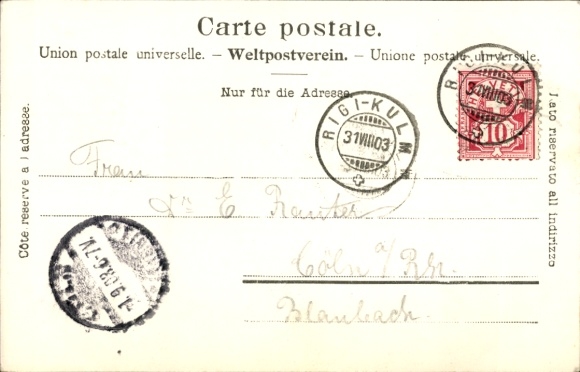 Carte postale.
Union postale universelle. – Weltpostverein. – Unione postale universale.
Nur für die Adresse.
Côté réservé à l'adresse.
Lato riservato all indirizzo
RIGI-KULM
31.VIII.03
RIGI-KULM
31.VIII.03
HELVETIA
10
Frau
Dr. E
Cöln a/Rh.
Blaubach.
1.9.03.6-7N.